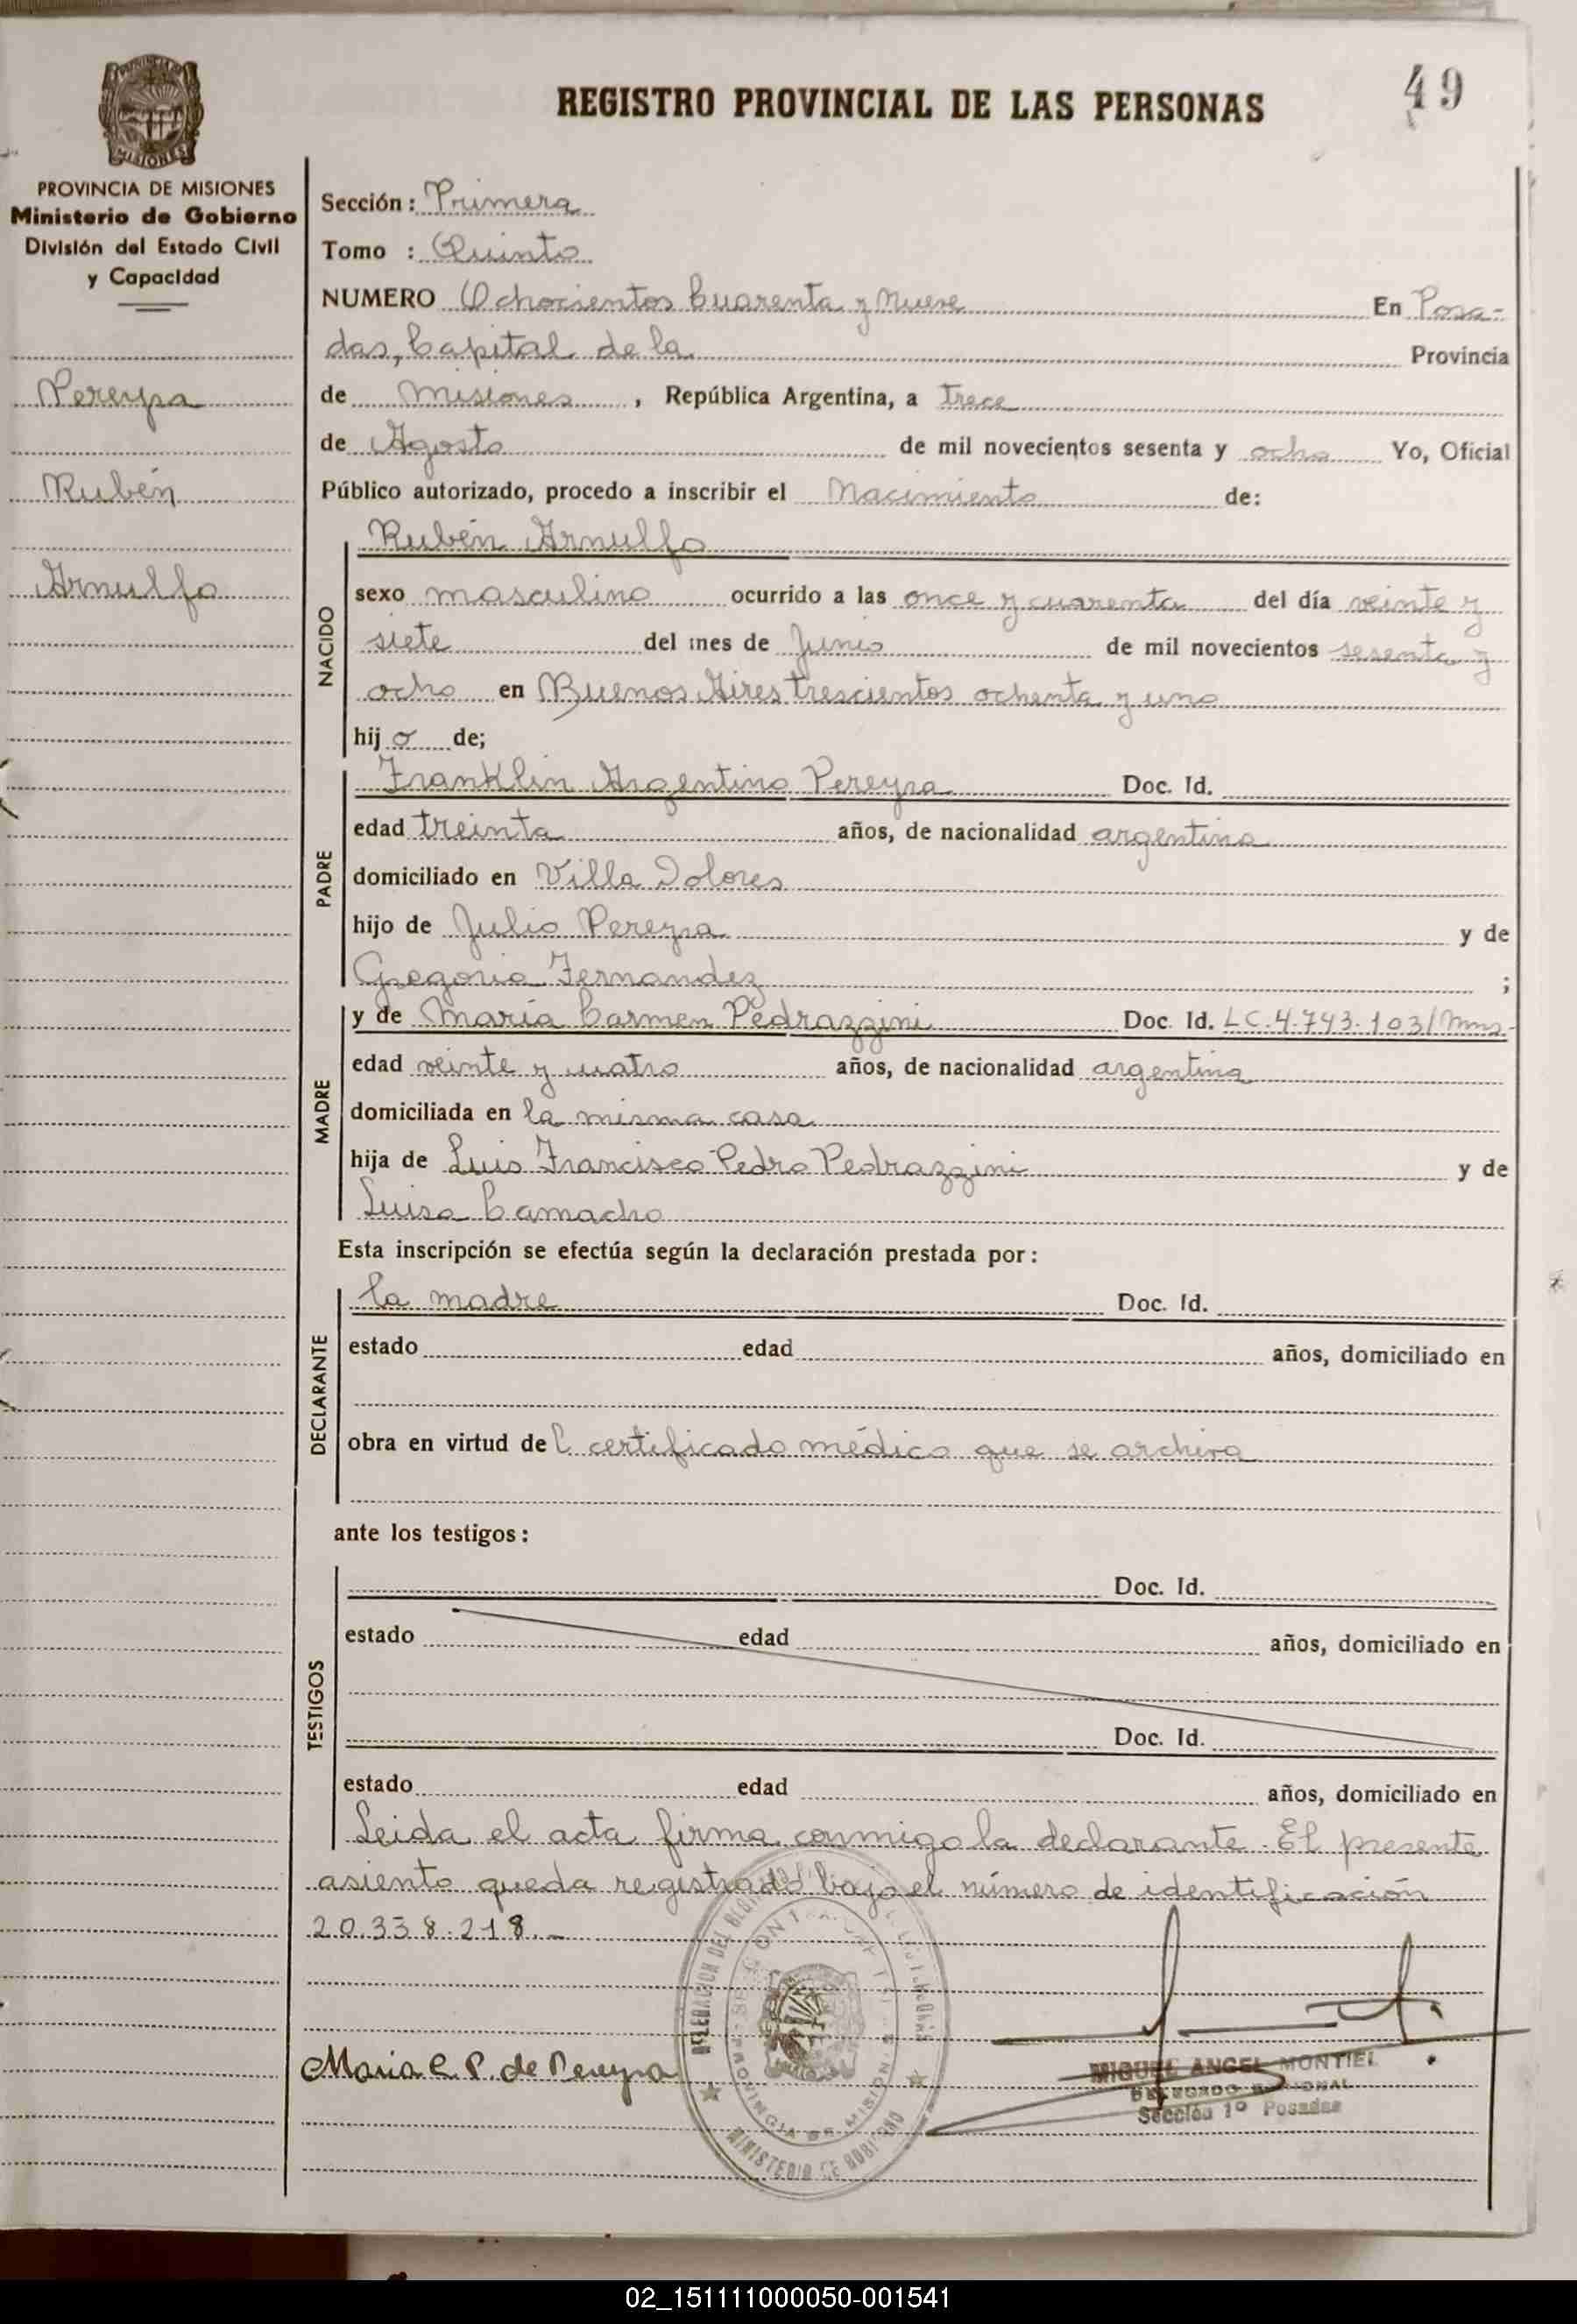 49
REGISTRO PROVINCIAL DE LAS PERSONAS
MISIONES
PROVINCIA DE MISIONES
Ministerio de Gobierno
División del Estado Civil
y Capacidad
Pereyra
Rubén
Arnulfo
Sección: Primera
Tomo : Quinto
NUMERO Ochocientos Cuarenta y Nueve En Posa-
das, Capital de la Provincia
de Misiones, República Argentina, a Trece
de Agosto de mil novecientos sesenta y ocho Yo, Oficial
Público autorizado, procedo a inscribir el Nacimiento de:
NACIDO
Rubén Arnulfo
sexo masculino ocurrido a las once y cuarenta del día veinte y
siete del mes de Junio de mil novecientos sesenta y
ocho en Buenos Aires trescientos ochenta y uno
hijo de;
PADRE
Franklin Argentino Pereyra Doc. Id.
edad treinta años, de nacionalidad argentina
domiciliado en Villa Dolores
hijo de Julio Pereyra y de
Gregoria Fernandez ;
MADRE
y de María Carmen Pedrazzini Doc. Id. LC.4.743.103/Mns.
edad veinte y cuatro años, de nacionalidad argentina
domiciliada en la misma casa
hija de Luis Francisco Pedro Pedrazzini y de
Luisa Camacho
Esta inscripción se efectúa según la declaración prestada por:
DECLARANTE
la madre Doc. Id.
estado edad años, domiciliado en
obra en virtud del certificado médico que se archiva
ante los testigos:
TESTIGOS
Doc. Id.
estado edad años, domiciliado en
Doc. Id.
estado edad años, domiciliado en
Leida el acta firma conmigo la declarante. El presente
asiento queda registrado bajo el número de identificación
20.338.218.-
Maria C. P. de Pereyra
PROVINCIA DE MISIONES
MINISTERIO DE GOBIERNO
MIGUEL ANGEL MONTIEL
DELEGADO REGIONAL
Sección 1º Posadas
02_151111000050-001541